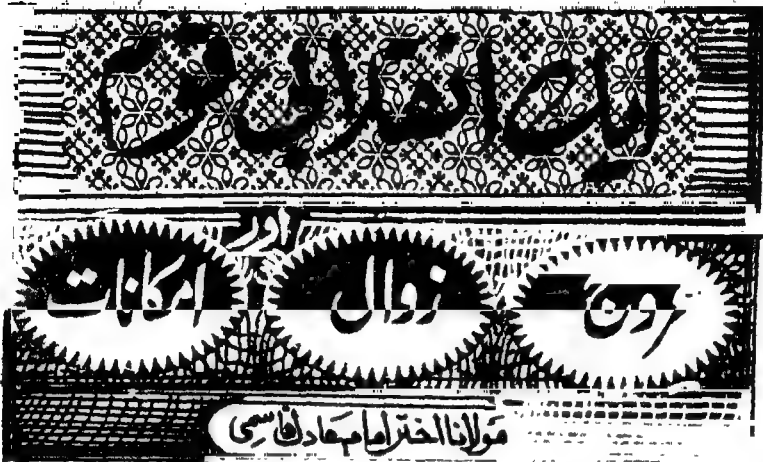 ایک انقلابی قوم
عروج زوال اور امکانات
مولانا اختر امام عادل قاسمی